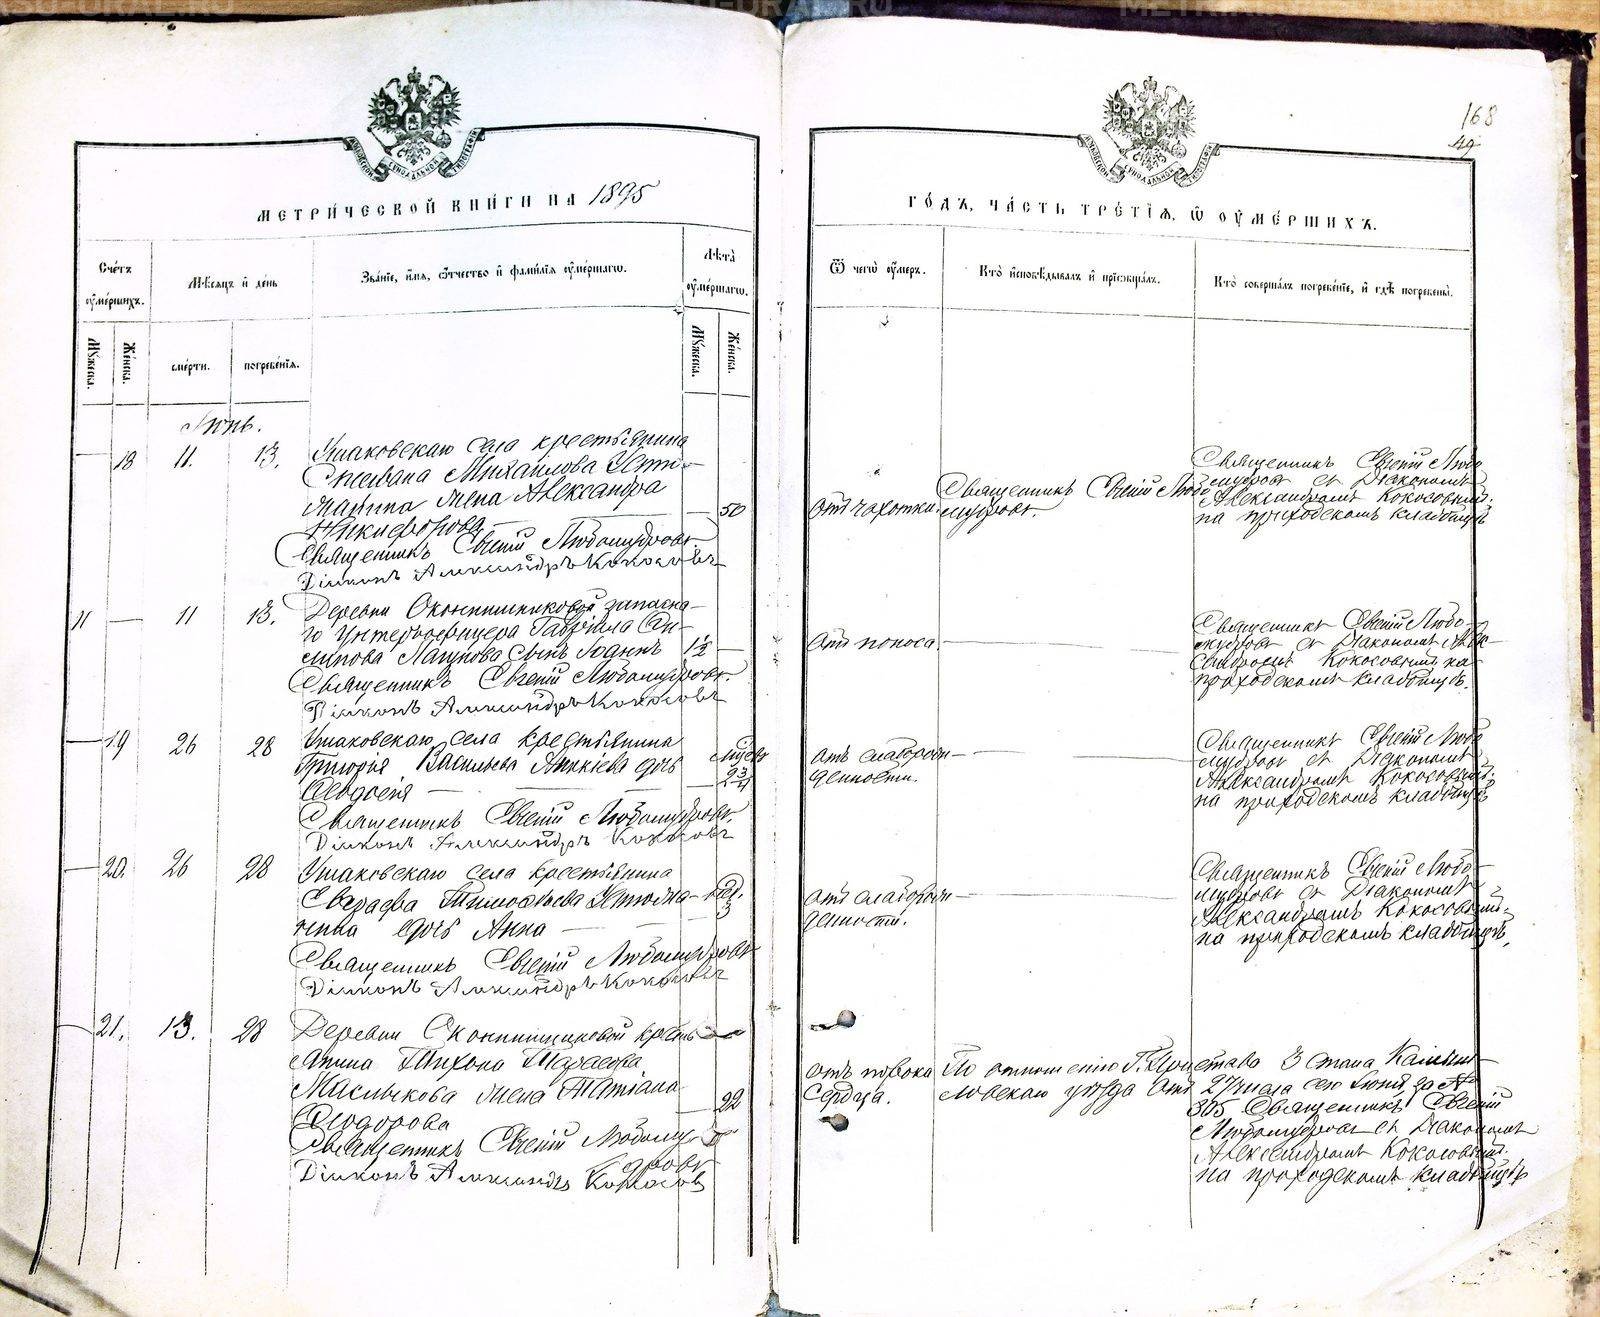 168
49
МЕТРИ́ЧЕСКОЙ КНИ́ГИ НА 1895
ГО́ДЪ, ЧА́СТЬ ТРЕ́ТІЯ, Ѿ ОУМЕ́РШИХЪ.
Сче́тъ оуме́ршихъ.
Мѣ́сяцъ и де́нь
Зва́ніе, и́мя, ѻ́тчество и фами́лія оуме́ршагѡ.
Лѣ́та оуме́ршагѡ.
Ѿ чегѡ̀ оу́меръ.
Кто̀ исповѣ́дывалъ и прїобща́лъ.
Кто̀ соверша́лъ погребе́ніе, и гдѣ̀ погребены̀.
Му́жеска.
Же́нска.
сме́рти.
погребе́нїя.
Му́жеска.
Же́нска.
Іюнь.
18 11. 13.
Ушаковскаго села крестьянина
Михаилова Устю-
жанина жена Александра
Никифорова
50
Священникъ Евгеній Любомудровъ
Діаконъ Александръ Кокосовъ
отъ чахотки
Священникъ Евгеній Любо-
мудровъ.
Священникъ Евгеній Любо
мудровъ съ Діакономъ
Александромъ Кокосовымъ.
на приходскомъ кладбищѣ
11 — 11 13.
Деревни Оконишниковой запасна-
го унтеръ-офицера Гавріила
Лагунова сынъ Іоаннъ 1½
Священникъ Евгеній Любомудровъ.
Діаконъ Александръ Кокосовъ
отъ поноса.
Священникъ Евгеній Любо-
мудровъ съ Діакономъ Алек-
сандромъ Кокосовымъ на
приходскомъ кладбищѣ.
— 19 26 28
Ушаковскаго села крестьянина
Григорія Васильева дочь
Ѳеодосія —
Священникъ Евгеній Любомудровъ.
Діаконъ Александръ Кокосовъ
отъ слаборож-
денности.
Священникъ Евгеній Любо
мудровъ съ Діакономъ
Александромъ Кокосовымъ.
на приходскомъ кладбищѣ
— 20. 26 28
Ушаковскаго села крестьянина
Тимофѣева Устюжа-
нина дочь Анна —
3
Священникъ Евгеній Любомудровъ
Діаконъ Александръ Кокосовъ
отъ слаборож-
денности.
Священникъ Евгеній Любо-
мудровъ съ Діакономъ
Александромъ Кокосовымъ.
на приходскомъ кладбищѣ.
— 21. 13. 28
Деревни Оконишниковой кресть-
янина Тихона Тарасова
Маслыкова жена Татіана
Ѳеодорова
22
Священникъ Евгеній Любому-
дровъ
Діаконъ Александръ Кокосовъ
отъ порока
сердца.
По отношенію Г. Пристава 3 стана Камыш-
ловскаго уѣзда отъ 27 числа сего Іюня за №
Священникъ Евгеній
Любомудровъ съ Діакономъ
Александромъ Кокосовымъ.
на приходскомъ кладбищѣ